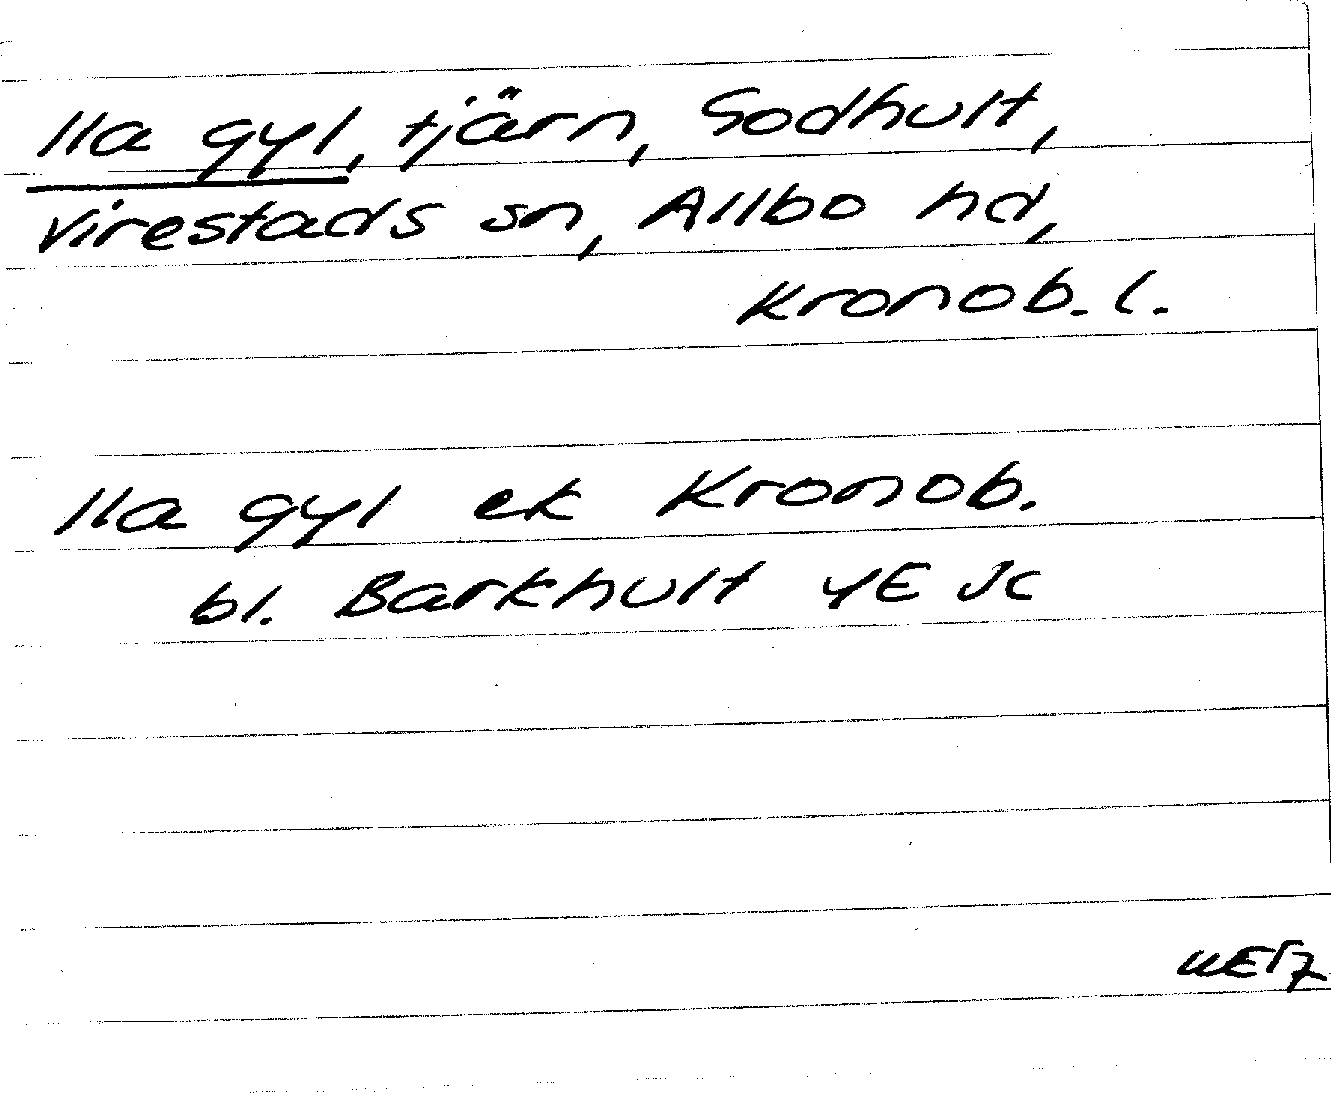 Ila gyl, tjärn, Sodhult,
Virestads sn, Allbo hd,
Kronob. l.
Ila gyl ek Kronob.
bl. Barkhult 4E Jc